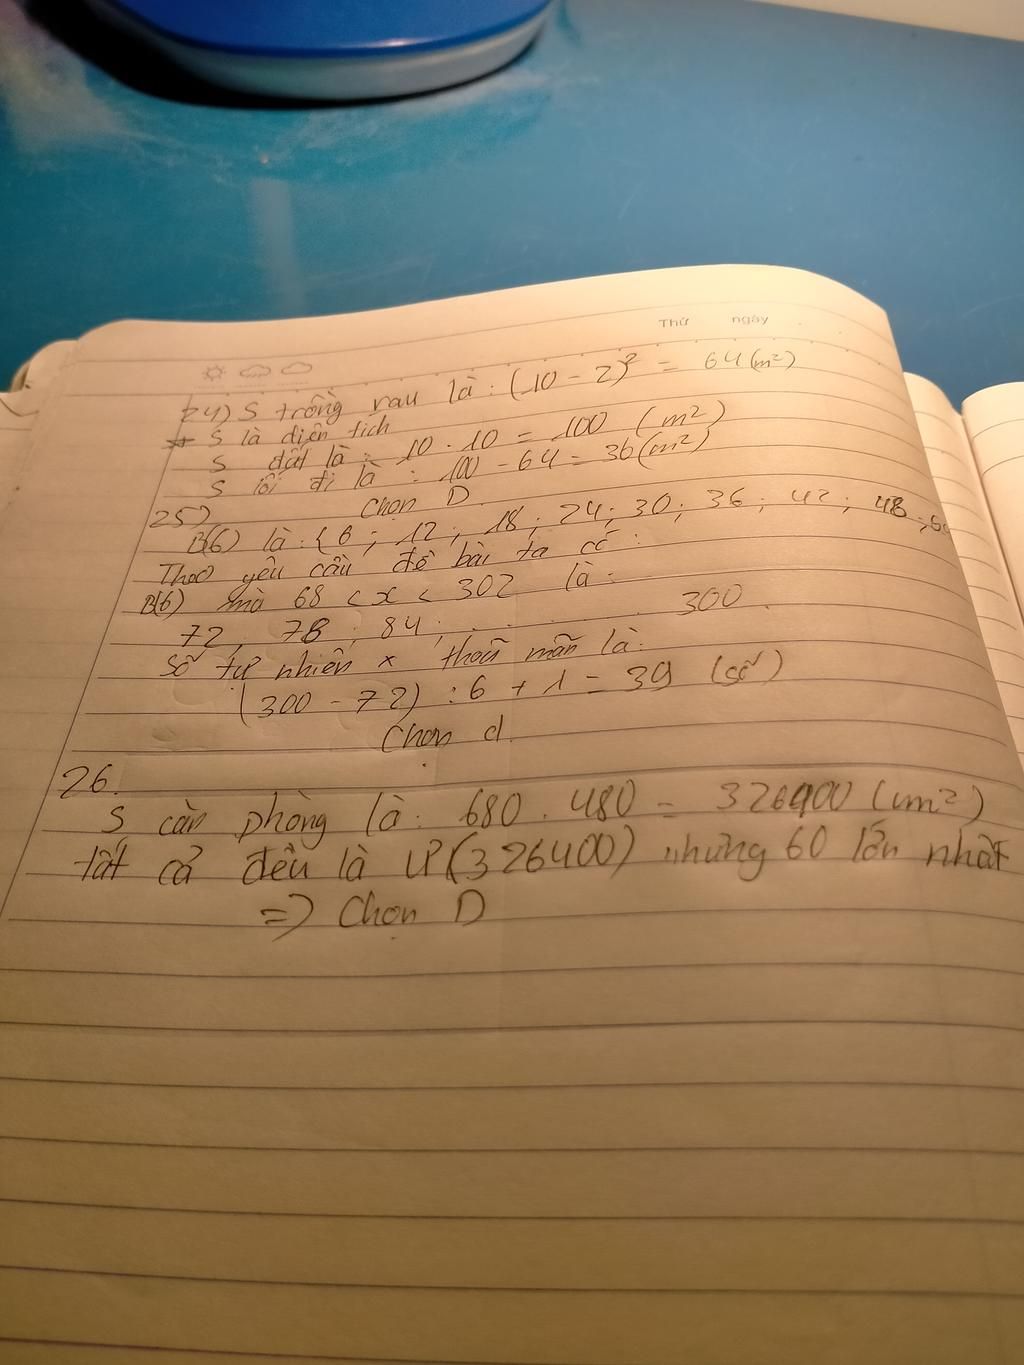 Thứ ngày
24) S trồng rau là: (10 - 2)² = 64 (m²)
* S là diện tích
S đất là: 10 . 10 = 100 (m²)
S lối đi là: 100 - 64 = 36 (m²)
Chọn D
25)
B(6) là: {6; 12; 18; 24; 30; 36; 42; 48;
Theo yêu cầu đề bài ta có:
B(6) mà 68 < x < 302 là:
72; 78; 84; ........ 300
Số tự nhiên x thoả mãn là:
(300 - 72) : 6 + 1 = 39 (số)
Chọn d.
26.
S căn phòng là: 680 . 480 = 326400 (cm²)
tất cả đều là Ư(326400) nhưng 60 lớn nhất
=> Chọn D